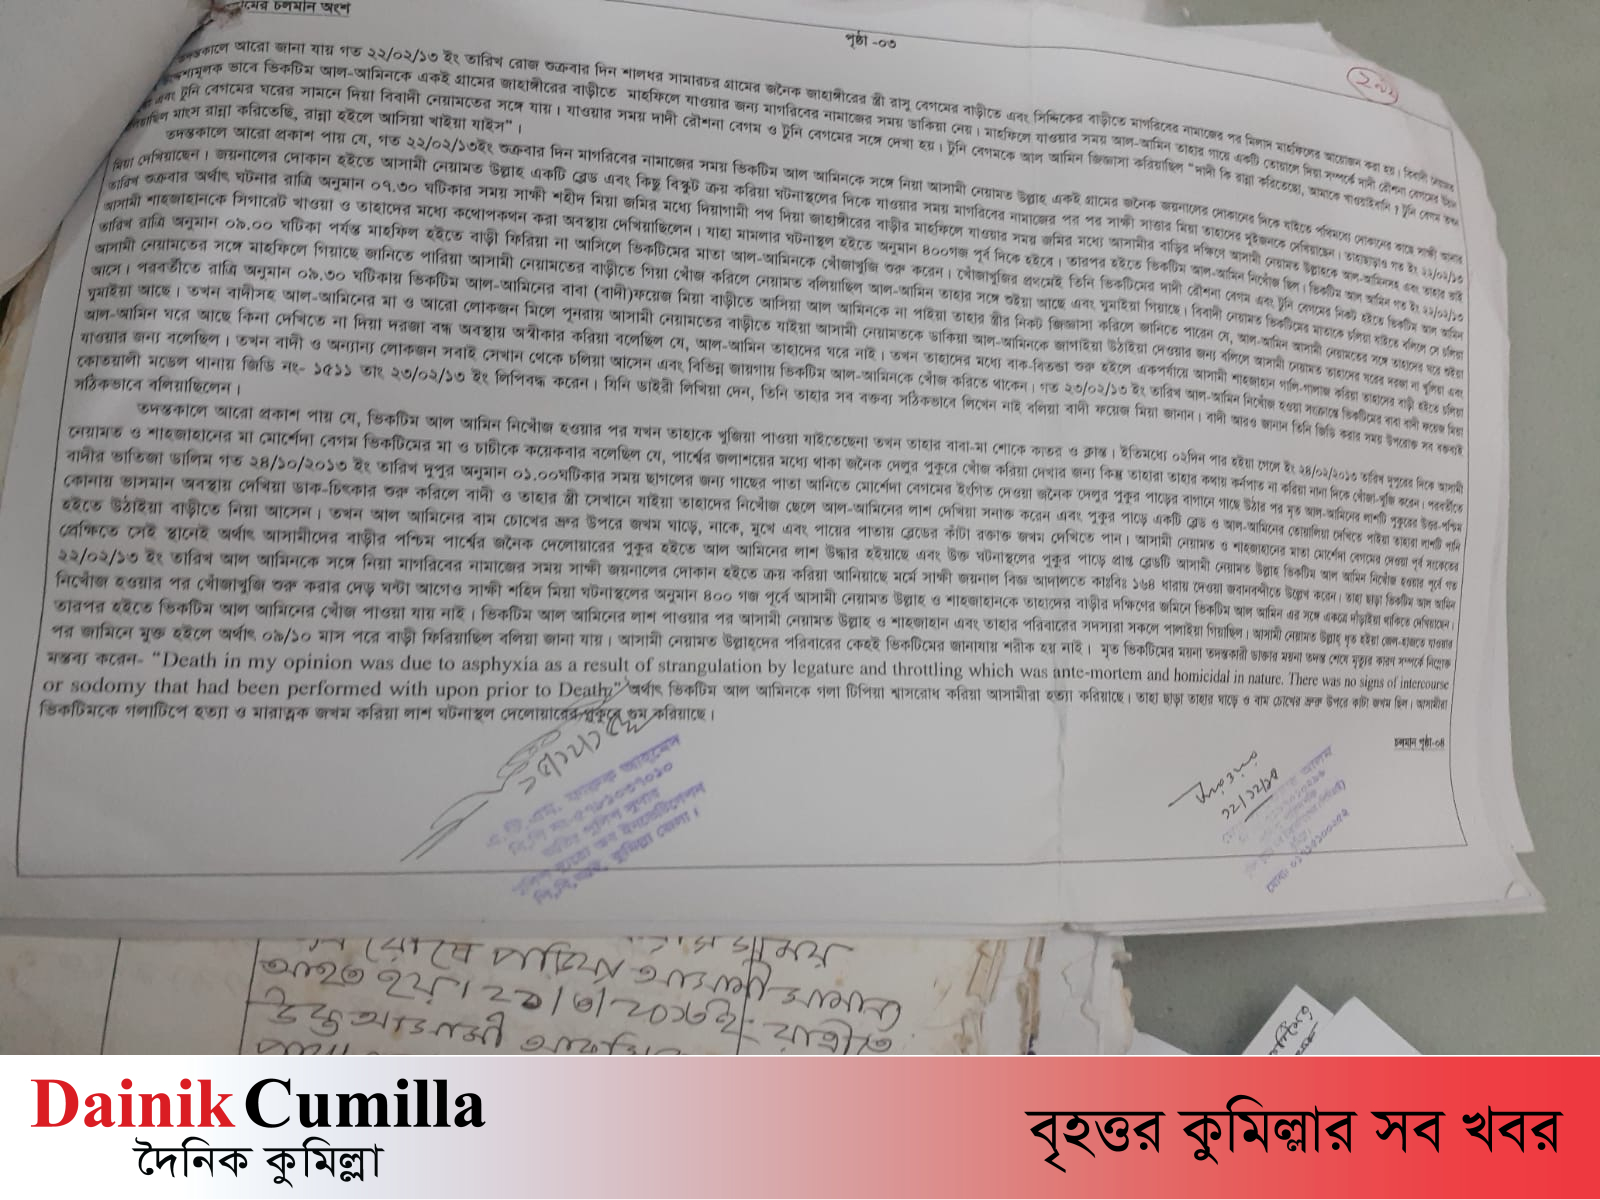 মের চলমান অংশ
পৃষ্ঠা -০৩
তদন্তকালে আরো জানা যায় গত ২২/০২/১৩ ইং তারিখ রোজ শুক্রবার দিন শালধর সামারচর গ্রামের জনৈক জাহাঙ্গীরের স্ত্রী রাসু বেগমের বাড়ীতে এবং সিদ্দিকের বাড়ীতে মাগরিবের নামাজের পর মিলাদ মাহফিলের আয়োজন করা হয়। বিবাদী নেয়ামত
মূলক ভাবে ভিকটিম আল-আমিনকে একই গ্রামের জাহাঙ্গীরের বাড়ীতে মাহফিলে যাওয়ার জন্য মাগরিবের নামাজের সময় ডাকিয়া নেয়। মাহফিলে যাওয়ার সময় আল-আমিন তাহার গায়ে একটি তোয়ালে দিয়া সম্পর্কে দাদী রৌশনা বেগমের
এবং টুনি বেগমের ঘরের সামনে দিয়া বিবাদী নেয়ামতের সঙ্গে যায়। যাওয়ার সময় দাদী রৌশনা বেগম ও টুনি বেগমের সঙ্গে দেখা হয়। টুনি বেগমকে আল আমিন জিজ্ঞাসা করিয়াছিল "দাদী কি রান্না করিতেছো, আমাকে খাওয়াইবানি ? টুনি বেগম তখন
মাংস রান্না করিতেছি, রান্না হইলে আসিয়া খাইয়া যাইস"।
তদন্তকালে আরো প্রকাশ পায় যে, গত ২২/০২/১৩ইং শুক্রবার দিন মাগরিবের নামাজের সময় ভিকটিম আল আমিনকে সঙ্গে নিয়া আসামী নেয়ামত উল্লাহ একই গ্রামের জনৈক জয়নালের দোকানের দিকে যাইতে পথিমধ্যে দোকানের কাছে সাক্ষী আনার
মিয়া দেখিয়াছেন। জয়নালের দোকান হইতে আসামী নেয়ামত উল্লাহ একটি ব্লেড এবং কিছু বিস্কুট ক্রয় করিয়া ঘটনাস্থলের দিকে যাওয়ার সময় মাগরিবের নামাজের পর পর সাক্ষী সাত্তার মিয়া তাহাদের দুইজনকে দেখিয়াছেন। তাহাছাড়াও গত ইং ২২/০২/১৩
তারিখ শুক্রবার অর্থাৎ ঘটনার রাত্রি অনুমান ০৭.৩০ ঘটিকার সময় সাক্ষী শহীদ মিয়া জমির মধ্যে দিয়াগামী পথ দিয়া জাহাঙ্গীরের বাড়ীর মাহফিলে যাওয়ার সময় জমির মধ্যে আসামীর বাড়ির দক্ষিণে আসামী নেয়ামত উল্লাহকে আল-আমিনসহ এবং তাহার ভাই
আসামী শাহজাহানকে সিগারেট খাওয়া ও তাহাদের মধ্যে কথোপকথন করা অবস্থায় দেখিয়াছিলেন। যাহা মামলার ঘটনাস্থল হইতে অনুমান ৪০০গজ পূর্ব দিকে হইবে। তারপর হইতে ভিকটিম আল-আমিন নিখোঁজ ছিল। ভিকটিম আল আমিন গত ইং ২২/০২/১৩
তারিখ রাত্রি অনুমান ০৯.০০ ঘটিকা পর্যন্ত মাহফিল হইতে বাড়ী ফিরিয়া না আসিলে ভিকটিমের মাতা আল-আমিনকে খোঁজাখুজি শুরু করেন। খোঁজাখুজির প্রথমেই তিনি ভিকটিমের দাদী রৌশনা বেগম এবং টুনি বেগমের নিকট হইতে ভিকটিম আল আমিন
আসামী নেয়ামতের সঙ্গে মাহফিলে গিয়াছে জানিতে পারিয়া আসামী নেয়ামতের বাড়ীতে গিয়া খোঁজ করিলে নেয়ামত বলিয়াছিল আল-আমিন তাহার সঙ্গে শুইয়া আছে এবং ঘুমাইয়া গিয়াছে। বিবাদী নেয়ামত ভিকটিমের মাতাকে চলিয়া যাইতে বলিলে সে চলিয়া
আসে। পরবর্তীতে রাত্রি অনুমান ০৯.৩০ ঘটিকায় ভিকটিম আল-আমিনের বাবা (বাদী)ফয়েজ মিয়া বাড়ীতে আসিয়া আল আমিনকে না পাইয়া তাহার স্ত্রীর নিকট জিজ্ঞাসা করিলে জানিতে পারেন যে, আল-আমিন আসামী নেয়ামতের সঙ্গে তাহাদের ঘরে শুইয়া
ঘুমাইয়া আছে। তখন বাদীসহ আল-আমিনের মা ও আরো লোকজন মিলে পূনরায় আসামী নেয়ামতের বাড়ীতে যাইয়া আসামী নেয়ামতকে ডাকিয়া আল-আমিনকে জাগাইয়া উঠাইয়া দেওয়ার জন্য বলিলে আসামী নেয়ামত তাহাদের ঘরের দরজা না খুলিয়া এবং
আল-আমিন ঘরে আছে কিনা দেখিতে না দিয়া দরজা বন্ধ অবস্থায় অস্বীকার করিয়া বলেছিল যে, আল-আমিন তাহাদের ঘরে নাই। তখন তাহাদের মধ্যে বাক-বিতন্ডা শুরু হইলে একপর্যায়ে আসামী শাহজাহান গালি-গালাজ করিয়া তাহাদের বাড়ী হইতে চলিয়া
যাওয়ার জন্য বলেছিল। তখন বাদী ও অন্যান্য লোকজন সবাই সেখান থেকে চলিয়া আসেন এবং বিভিন্ন জায়গায় ভিকটিম আল-আমিনকে খোঁজ করিতে থাকেন। গত ২৩/০২/১৩ ইং তারিখ আল-আমিন নিখোঁজ হওয়া সংক্রান্তে ভিকটিমের বাবা বাদী ফয়েজ মিয়া
কোতয়ালী মডেল থানায় জিডি নং- ১৫১১ তাং ২৩/০২/১৩ ইং লিপিবদ্ধ করেন। যিনি ডাইরী লিখিয়া দেন, তিনি তাহার সব বক্তব্য সঠিকভাবে লিখেন নাই বলিয়া বাদী ফয়েজ মিয়া জানান। বাদী আরও জানান তিনি জিডি করার সময় উপরোক্ত সব বক্তব্যই
সঠিকভাবে বলিয়াছিলেন।
তদন্তকালে আরো প্রকাশ পায় যে, ভিকটিম আল আমিন নিখোঁজ হওয়ার পর যখন তাহাকে খুজিয়া পাওয়া যাইতেছেনা তখন তাহার বাবা-মা শোকে কাতর ও ক্লান্ত। ইতিমধ্যে ০২দিন পার হইয়া গেলে ইং ২৪/০২/২০১৩ তারিখ দুপুরের দিকে আসামী
নেয়ামত ও শাহজাহানের মা মোর্শেদা বেগম ভিকটিমের মা ও চাচীকে কয়েকবার বলেছিল যে, পার্শ্বের জলাশয়ের মধ্যে থাকা জনৈক দেলুর পুকুরে খোঁজ করিয়া দেখার জন্য কিন্তু তাহারা তাহার কথায় কর্নপাত না করিয়া নানা দিকে খোঁজা-খুজি করেন। পরবর্তীতে
বাদীর ভাতিজা ডালিম গত ২৪/১০/২০১৩ ইং তারিখ দুপুর অনুমান ০১.০০ঘটিকার সময় ছাগলের জন্য গাছের পাতা আনিতে মোর্শেদা বেগমের ইংগিত দেওয়া জনৈক দেলুর পুকুর পাড়ের বাগানে গাছে উঠার পর মৃত আল-আমিনের লাশটি পুকুরের উত্তর-পশ্চিম
কোনায় ভাসমান অবস্থায় দেখিয়া ডাক-চিৎকার শুরু করিলে বাদী ও তাহার স্ত্রী সেখানে যাইয়া তাহাদের নিখোঁজ ছেলে আল-আমিনের লাশ দেখিয়া সনাক্ত করেন এবং পুকুর পাড়ে একটি ব্লেড ও আল-আমিনের তোয়ালিয়া দেখিতে পাইয়া তাহারা লাশটি পানি
হইতে উঠাইয়া বাড়ীতে নিয়া আসেন। তখন আল আমিনের বাম চোখের ভ্রুর উপরে জখম ঘাড়ে, নাকে, মুখে এবং পায়ের পাতায় ব্লেডের কাঁটা রক্তাক্ত জখম দেখিতে পান। আসামী নেয়ামত ও শাহজাহানের মাতা মোর্শেদা বেগমের দেওয়া পূর্ব সংকেতের
প্রেক্ষিতে সেই স্থানেই অর্থাৎ আসামীদের বাড়ীর পশ্চিম পার্শ্বের জনৈক দেলোয়ারের পুকুর হইতে আল আমিনের লাশ উদ্ধার হইয়াছে এবং উক্ত ঘটনাস্থলের পুকুর পাড়ে প্রাপ্ত ব্লেডটি আসামী নেয়ামত উল্লাহ ভিকটিম আল আমিন নিখোঁজ হওয়ার পূর্বে গত
২২/০২/১৩ ইং তারিখ আল আমিনকে সঙ্গে নিয়া মাগরিবের নামাজের সময় সাক্ষী জয়নালের দোকান হইতে ক্রয় করিয়া আনিয়াছে মর্মে সাক্ষী জয়নাল বিজ্ঞ আদালতে কাঃবিঃ ১৬৪ ধারায় দেওয়া জবানবন্দীতে উল্লেখ করেন। তাহা ছাড়া ভিকটিম আল আমিন
নিখোঁজ হওয়ার পর খোঁজাখুজি শুরু করার দেড় ঘন্টা আগেও সাক্ষী শহিদ মিয়া ঘটনাস্থলের অনুমান ৪০০ গজ পূর্বে আসামী নেয়ামত উল্লাহ ও শাহজাহানকে তাহাদের বাড়ীর দক্ষিণের জমিনে ভিকটিম আল আমিন এর সঙ্গে একত্রে দাঁড়াইয়া থাকিতে দেখিয়াছেন।
তারপর হইতে ভিকটিম আল আমিনের খোঁজ পাওয়া যায় নাই। ভিকটিম আল আমিনের লাশ পাওয়ার পর আসামী নেয়ামত উল্লাহ ও শাহজাহান এবং তাহার পরিবারের সদস্যরা সকলে পালাইয়া গিয়াছিল। আসামী নেয়ামত উল্লাহ্ ধৃত হইয়া জেল-হাজতে যাওয়ার
পর জামিনে মুক্ত হইলে অর্থাৎ ০৯/১০ মাস পরে বাড়ী ফিরিয়াছিল বলিয়া জানা যায়। আসামী নেয়ামত উল্লাহ্দের পরিবারের কেহই ভিকটিমের জানাযায় শরীক হয় নাই। মৃত ভিকটিমের ময়না তদন্তকারী ডাক্তার ময়না তদন্ত শেষে মৃত্যুর কারণ সম্পর্কে নিম্নোক্ত
মন্তব্য করেন- "Death in my opinion was due to asphyxia as a result of strangulation by legature and throttling which was ante-mortem and homicidal in nature. There was no signs of intercourse
or sodomy that had been performed with upon prior to Death." অর্থাৎ ভিকটিম আল আমিনকে গলা টিপিয়া শ্বাসরোধ করিয়া আসামীরা হত্যা করিয়াছে। তাহা ছাড়া তাহার ঘাড়ে ও বাম চোখের ভ্রুর উপরে কাটা জখম ছিল। আসামীরা
ভিকটিমকে গলাটিপে হত্যা ও মারাত্নক জখম করিয়া লাশ ঘটনাস্থল দেলোয়ারের পুকুরে গুম করিয়াছে।
চলমান পৃষ্ঠা-০৪
১২/১২/১৪
এ.টি.এম. ফারুক আহমেদ
কুমিল্লা জেলা।
আহত হয়। ২৯/৩/২০১৩ইং
Dainik Cumilla
দৈনিক কুমিল্লা
বৃহত্তর কুমিল্লার সব খবর